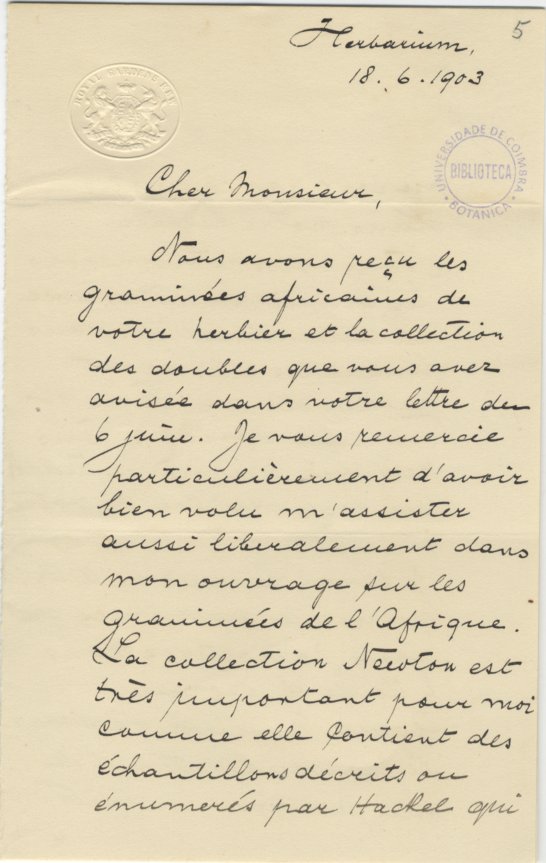 5
Herbarium,
18. 6. 1903
ROYAL GARDENS KEW
UNIVERSIDADE DE COIMBRA
BIBLIOTECA
BOTANICA
Cher Monsieur,
Nous avons reçu les
graminées africaines de
votre herbier et la collection
des doubles que vous avez
avisée dans votre lettre du
6 juin. Je vous remercie
particulièrement d'avoir
bien volu m'assister
aussi liberalement dans
mon ouvrage sur les
graminées de l'Afrique.
La collection Newton est
très important pour moi
comme elle contient des
échantillons décrits ou
énumerés par Hackel qui